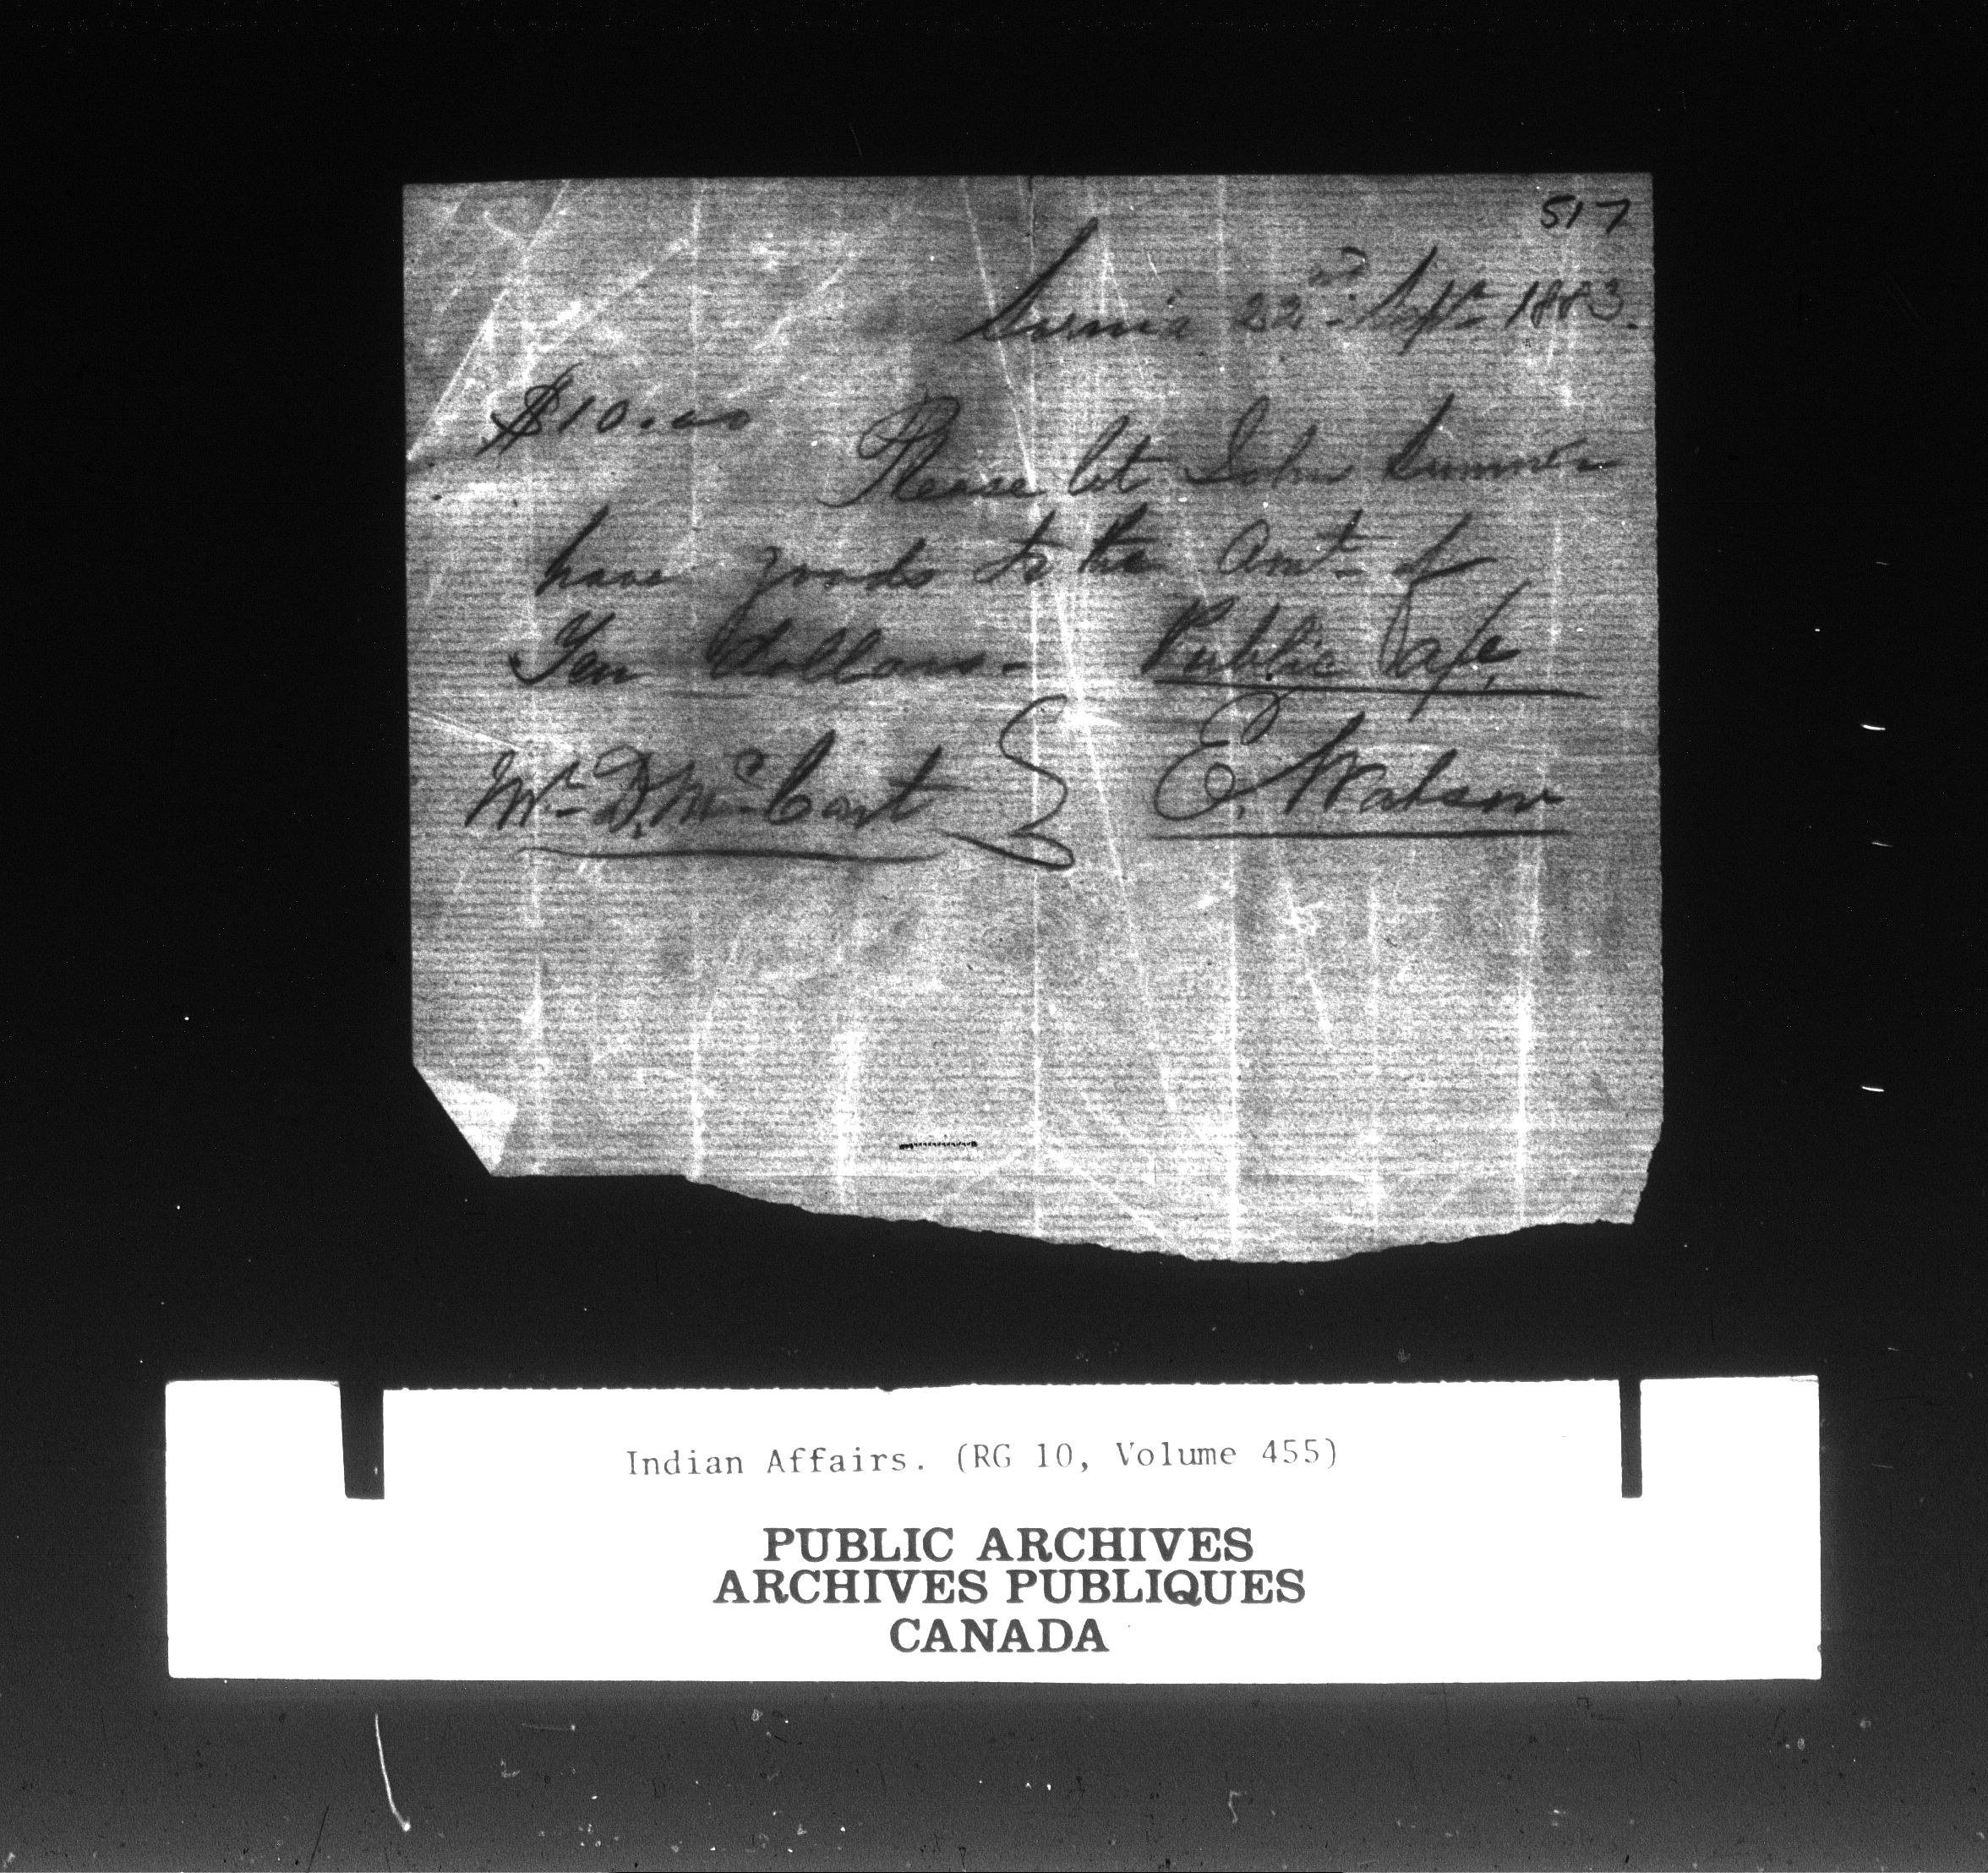 517
Sarnia 22nd Sept 1883.
$10.00
Please let John Summer
have goods to the Amt of
Ten dollars - Public a/c.
Mr D. McCart E. Watson
Indian Affairs. (RG 10, Volume 455)
PUBLIC ARCHIVES
ARCHIVES PUBLIQUES
CANADA